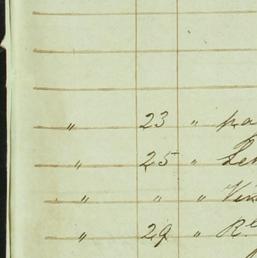 " 23 " pa
" 25 " Le
" " " Vis
" 29 " Re